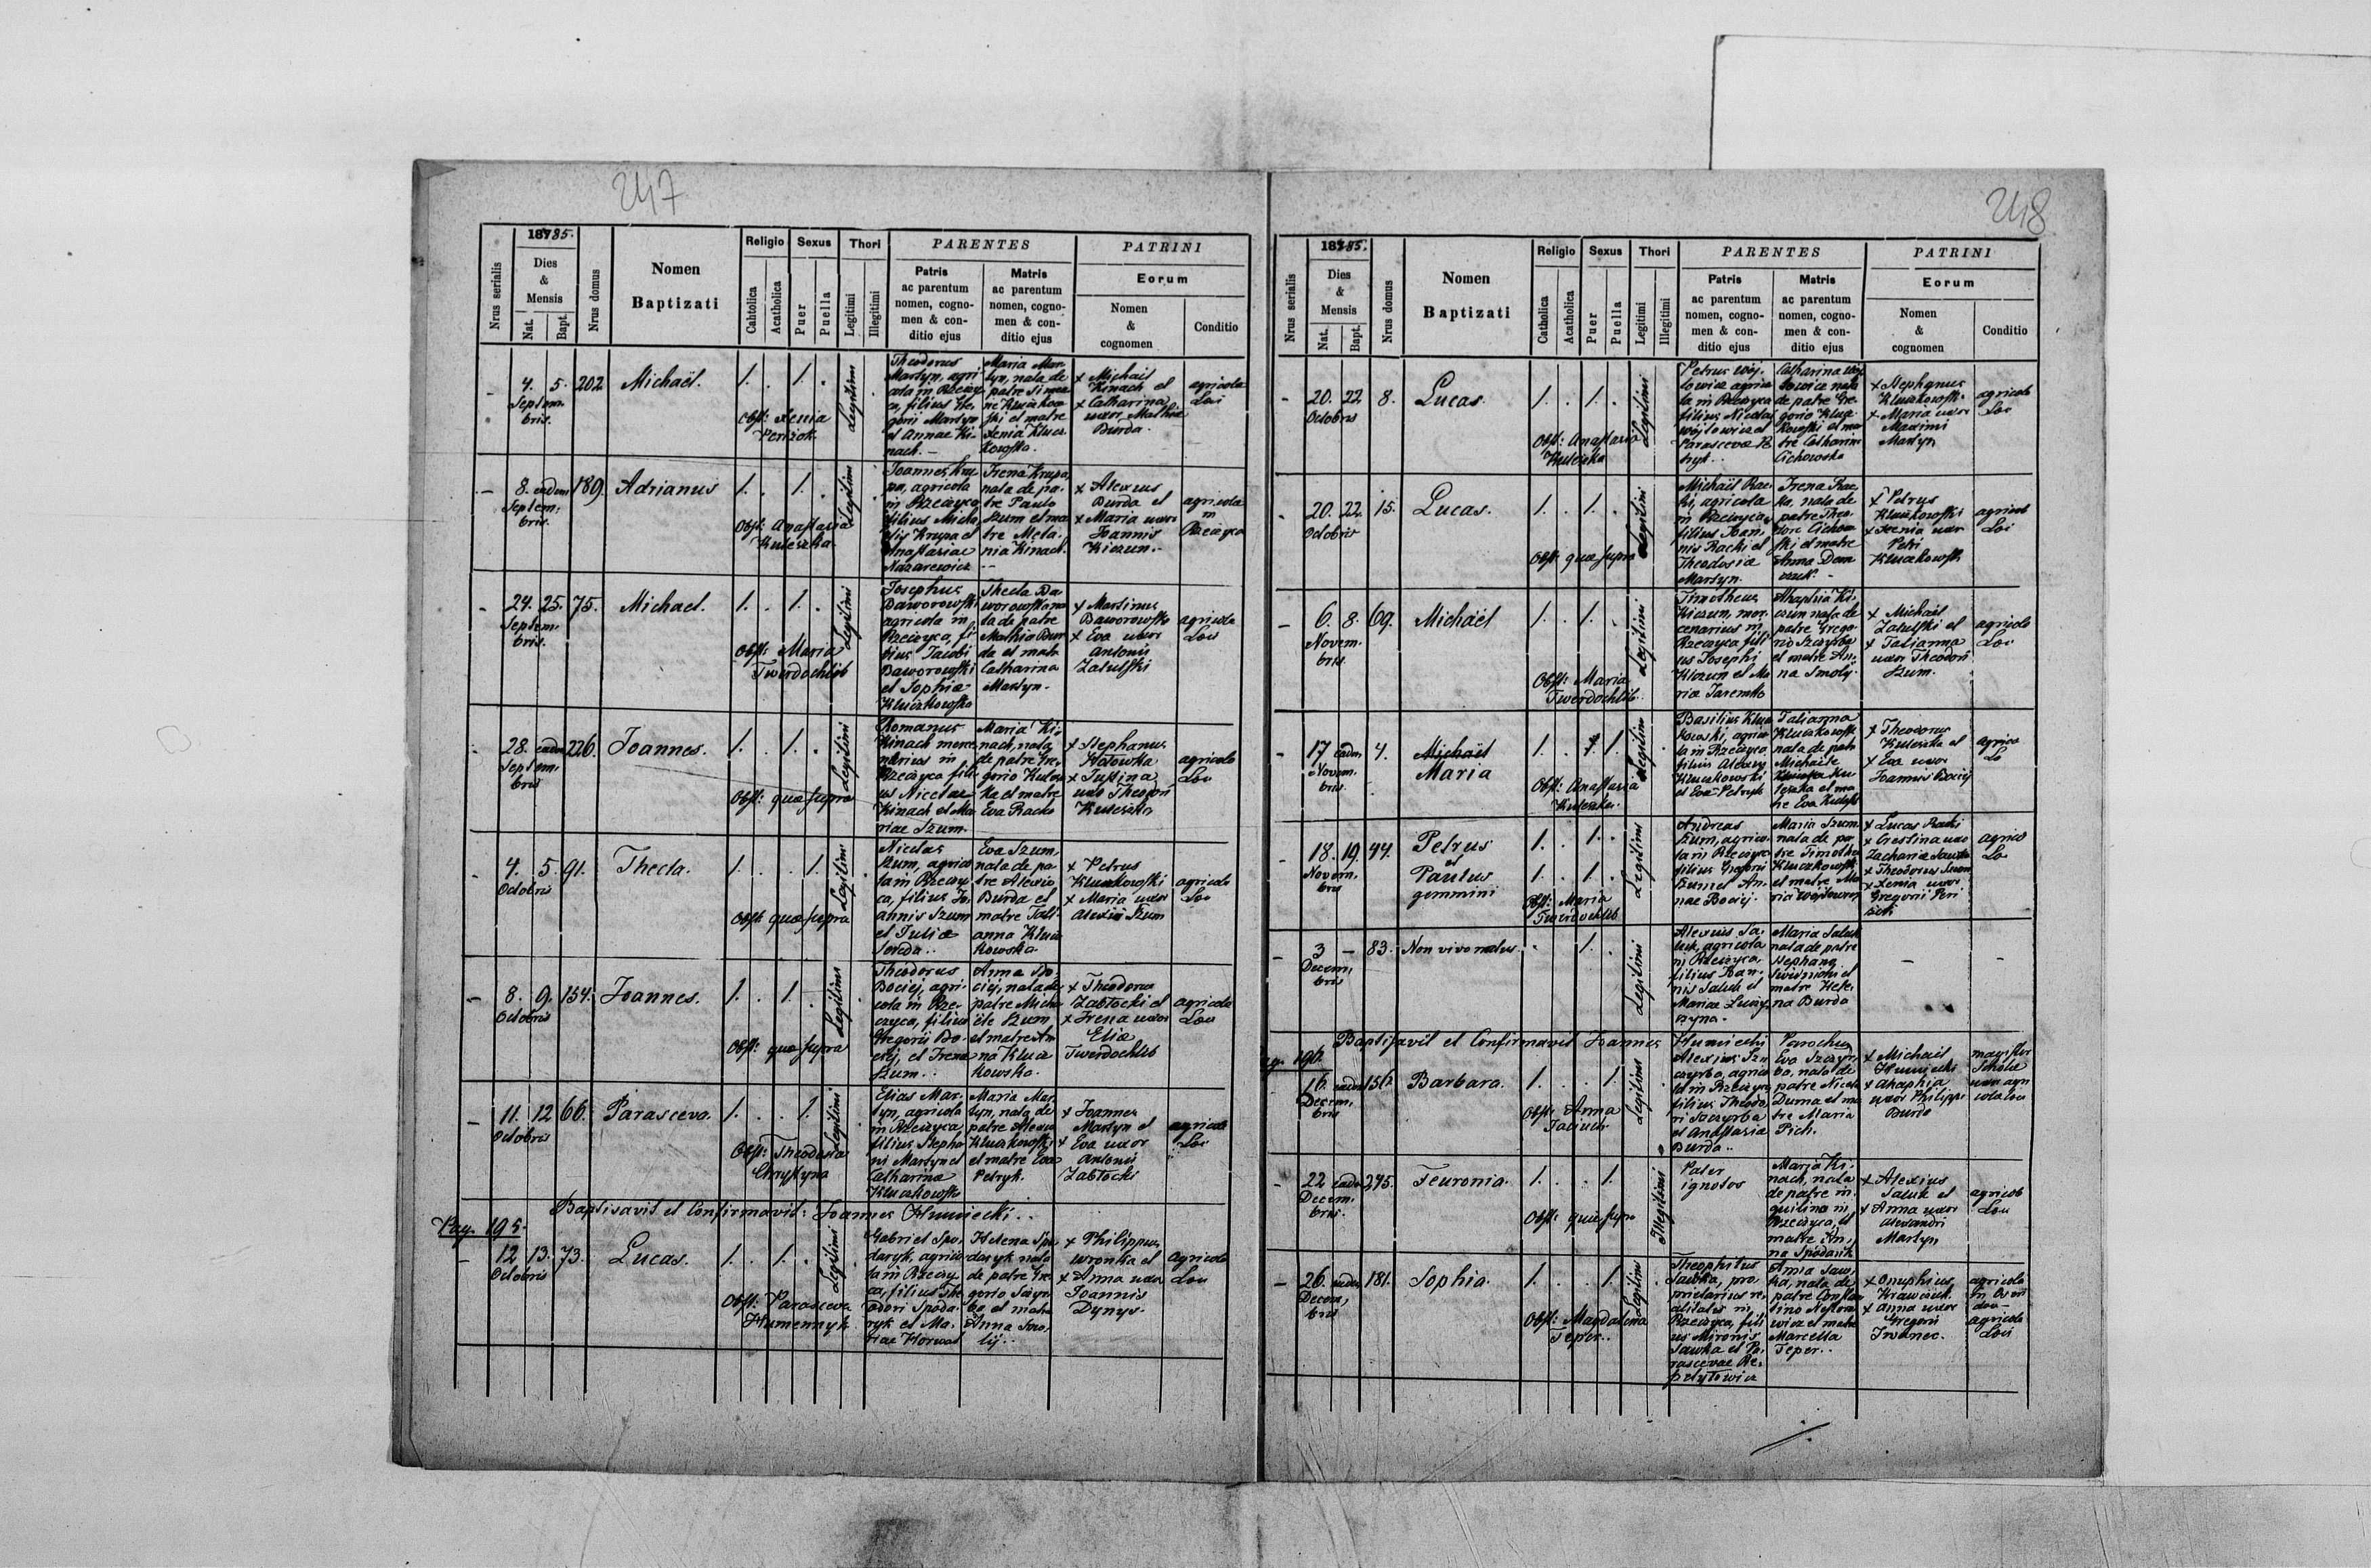 247
1885.
Nrus serialis
Dies
&
Mensis
Nat.
Bapt.
Nrus domus
Nomen
Baptizati
Religio
Cahtolica
Acatholica
Sexus
Puer
Puella
Thori
Legitimi
Illegitimi
PARENTES
Patris
ac parentum
nomen, cogno-
men & con-
ditio ejus
Matris
ac parentum
nomen, cogno-
men & con-
ditio ejus
PATRINI
Eorum
Nomen
&
cognomen
Conditio
4. 5. 202 Michaël. 1. . 1. .
Septem-
bris.
Legitimi
Obst: Xenia
Theodorus
Martyn, agri
cola in Rzeczy
ca, filius Gre-
gorii Martyn
et Annae Ki-
nach. -
Maria Mar-
tyn, nata de
patre Simeo
ne Kluczkow
ski et matre
Xenia Klucz
kowska.
+ Michaël
Kinach et
+ Catharina
uxor Mathiæ
Burda.
agricola
Loci
- 8. eadem 189. Adrianus 1. . 1. .
Septem-
bris.
Legitimi
Obst: Anastasia
Kuleszka
Joannes Kru
pa, agricola
in Rzeczyca
filius Micha
elis Krupa et
Anastasiae
Nazarewicz
Irena Krupa,
nata de pa-
tre Paulo
Szum et ma
tre Mela-
nia Kinach
+ Alexius
Burda et
+ Maria uxor
Joannis
Kiczun.
agricola
in
Rzeczyca
- 24. 25. 75. Michael. 1. . 1. .
Septem-
bris.
Legitimi
Obst: Maria
Twerdochlib
Josephus
Daworowski
agricola in
Rzeczyca, fi-
lius Jacobi
Daworowski
et Sophiæ
Kluczkowska
Thecla Da-
worowska na
ta de patre
Mathia Bur
da et matre
Catharina
Martyn.
+ Martinus
Daworowski
+ Eva uxor
Antonii
Zalutski
agricola
Loci
28. eadem 226. Joannes. 1. . 1. .
Septem-
bris
Legitimi
Obst: quæ supra
Romanus
Kinach merce
narius in
Rzeczyca fili-
us Nicolae
Kinach et Ma
riae Szum.
Maria Ki-
nach, nata
de patre Gre-
gorio Kulesz
ka et matre
Eva Racka
+ Stephanus
+ Justina
uxor Theodori
Kuleszka
agricola
Loci
4. 5. 91. Thecla. 1. . . 1.
Octobris
Legitimi
Obst: quæ supra
Nicolas
Szum, agrico
la in Rzeczy
ca, filius Jo-
annis Szum
et Juliæ
Eva Szum
nata de pa-
tre Alexio
Burda et
matre Tati-
anna Klucz
kowska.
+ Petrus
Kluczkowski
+ Maria uxor
Alexii Szum
agricola
Loci
- 8. 9. 154. Joannes. 1. . 1. .
Octobris
Legitimi
Obst: quæ supra
Theodorus
Bociej, agri-
cola in Rze-
czyca, filius
Gregorii Bo-
ciej, et Irena
Szum..
Anna Bo-
ciej, nata de
patre Micha
ële Szum
et matre An
na Klucz
kowska.
+ Theodorus
Zabłocki et
+ Irena uxor
Eliæ
Twerdochlib
agricola
Loci
- 11. 12 66. Parasceva. 1. . . 1.
Octobris
Legitimi
Obst: Theodosia
Chrystyna
Elias Mar-
tyn, agricola
in Rzeczyca
filius Stepha
ni Martyn et
Catharina
Kluczkowska
Maria Mar
tyn, nata de
patre Alexio
Kluczkowski
et matre Eva
Petryk.
+ Joannes
Martyn et
+ Eva uxor
Antonii
Zabłocki
agricola
Loci
Baptisavit et Confirmavit: Joannes Humiecki..
Pag. 195.
- 12 13. 73. Lucas. 1. . 1. .
Octobris
Legitimi
Obst: Parasceva
Humennyk
Gabriel Spo-
daryk, agrico
la in Rzeczy
ca, filius The
odori Spoda-
ryk et Ma-
riae Horwat
Helena Spo
daryk nata
de patre Gre
gorio Szczyr
ba et matre
Anna Smo-
lij..
+ Philippus
Wronka et
+ Anna uxor
Joannis
Dynys.
agricola
Loci
248
1885.
Nrus serialis
Dies
&
Mensis
Nat.
Bapt.
Nrus domus
Nomen
Baptizati
Religio
Catholica
Acatholica
Sexus
Puer
Puella
Thori
Legitimi
Illegitimi
PARENTES
Patris
ac parentum
nomen, cogno-
men & con-
ditio ejus
Matris
ac parentum
nomen, cogno-
men & con-
ditio ejus
PATRINI
Eorum
Nomen
&
cognomen
Conditio
- 20. 22 8. Lucas. 1. . 1. .
Octobris
Legitimi
Obst: Anastasia
Kuleszka
Petrus Woj-
towicz agrico
la in Rzeczyca
filius Nicolai
Wojtowicz et
Parascevæ Pe
tryk..
Catharina Woj
towicz nata
de patre Gre-
gorio Klucz-
kowski et ma
tre Catharina
Cichowska
+ Stephanus
Kluczkowski
+ Maria uxor
Maximi
Martyn
agricola
Loci
- 20. 22. 15. Lucas. 1. . 1. .
Octobris
Legitimi
Obst: quæ supra
Michaël Rac-
ki, agricola
in Rzeczyca,
filius Joan-
nis Racki et
Theodosiæ
Martyn.
Irena Rac-
ka, nata de
patre Theo-
dore Cichow
ski et matre
Anna Dem
+ Petrus
Kluczkowski
+ Xenia uxor
Petri
Kluczkowski
agricola
Loci
- 6. 8. 69. Michaël 1. . 1. .
Novem-
bris.
Legitimi
Obst: Maria
Twerdochlib.
Timotheus
Kiczun, mer-
cenarius in
Rzeczyca fili
us Josephi
Kiczun et Ma
riæ Jaremko
Ahaphia Ki-
czun nata de
patre Grego-
rio Szczyrba
et matre An-
na Smolij
+ Michaël
Zalutski et
+ Tatianna
uxor Theodori
Szum.
agricola
Loci
- 17 eadem 4. Michaël
Maria 1. . 1. 1.
Novem-
bris.
Legitimi
Obst: Anastasia
Kuleszka.
Basilius Klucz
kowski, agrico
la in Rzeczyca
filius Alexy
Kluczkowski
et Eva Petryk
Tatianna
Kluczkowska
nata de patre
Michaële
Ku-
leszka et ma
tre Eva
+ Theodorus
Kuleszka et
+ Eva uxor
Joannis Bociej
agrico
Lo
- 18. 19. 44. Petrus 1. . 1. .
et
Paulus 1. . 1. .
gemmini
Novem-
bris
Legitimi
Obst: Maria
Twerdochlib
Andreas
Szum, agrico-
la in Rzeczyca
filius Gregorii
Szum et An-
nae Bociej.
Maria Szum
nata de pa-
tre Timotheo
Kluczkowski
et matre Ma
ria Wojtowicz
+ Lucas Racki
+ Crestina uxor
Zachariæ Sawka
+ Theodorus Szum
+ Xenia uxor
Gregorii
agrico
Lo
- 3 - 83. Non vivo natus. . 1. .
Decem-
bris
Legitimi
Alexius Sa-
luk, agricola
in Rzeczyca,
filius Joan-
nis Saluk et
Mariae
Maria Saluk
nata de patre
Stephano
et
matre Hele-
na Burda
Baptisavit et Confirmavit Joannes Humiecki Parochus
Pag. 196.
16. eadem 156. Barbara. 1. . . 1.
Decem-
bris
Legitimi
Obst: Anna
Alexius Szc
zyrba, agrico
la in Rzeczyca
filius Theodo-
ri Szczyrba
et Anastasia
Burda..
Eva Szczyr-
ba, nata de
patre Nicola
Duma et ma
tre Maria
Pich.
+ Michaël
Humiecki
+ Ahaphia
uxor Philippi
Burda
magister
Scholæ
uxor agri
cola loci
- 22 eadem 245. Feuronia. 1. . . 1.
Decem-
bris.
Illegitimi
Obst: quæ supra
Pater
ignotos
Maria Ki-
nach, nata
de patre in-
quilino in
Rzeczyca, et
matre An-
na Spodaryk
+ Alexius
Saluk et
+ Anna uxor
Alexandri
Martyn
agricola
Loci
- 26. eadem 181. Sophia. 1. . . 1.
Decem-
bris
Legitimi
Obst: Magdalena
Teper..
Theophilus
Sawka, pro-
prietarius re-
alitatis in
Rzeczyca, fili
us Mironis
Sawka et Pa-
rascevae Re-
petylowicz
Anna Saw-
ka, nata de
patre Constan
tino Nestoro
wicz et matre
Marcella
Teper..
+ Onuphrius
Krawczuk
+ Anna uxor
Gregorii
Iwanec.
agricola
agricola
Loci